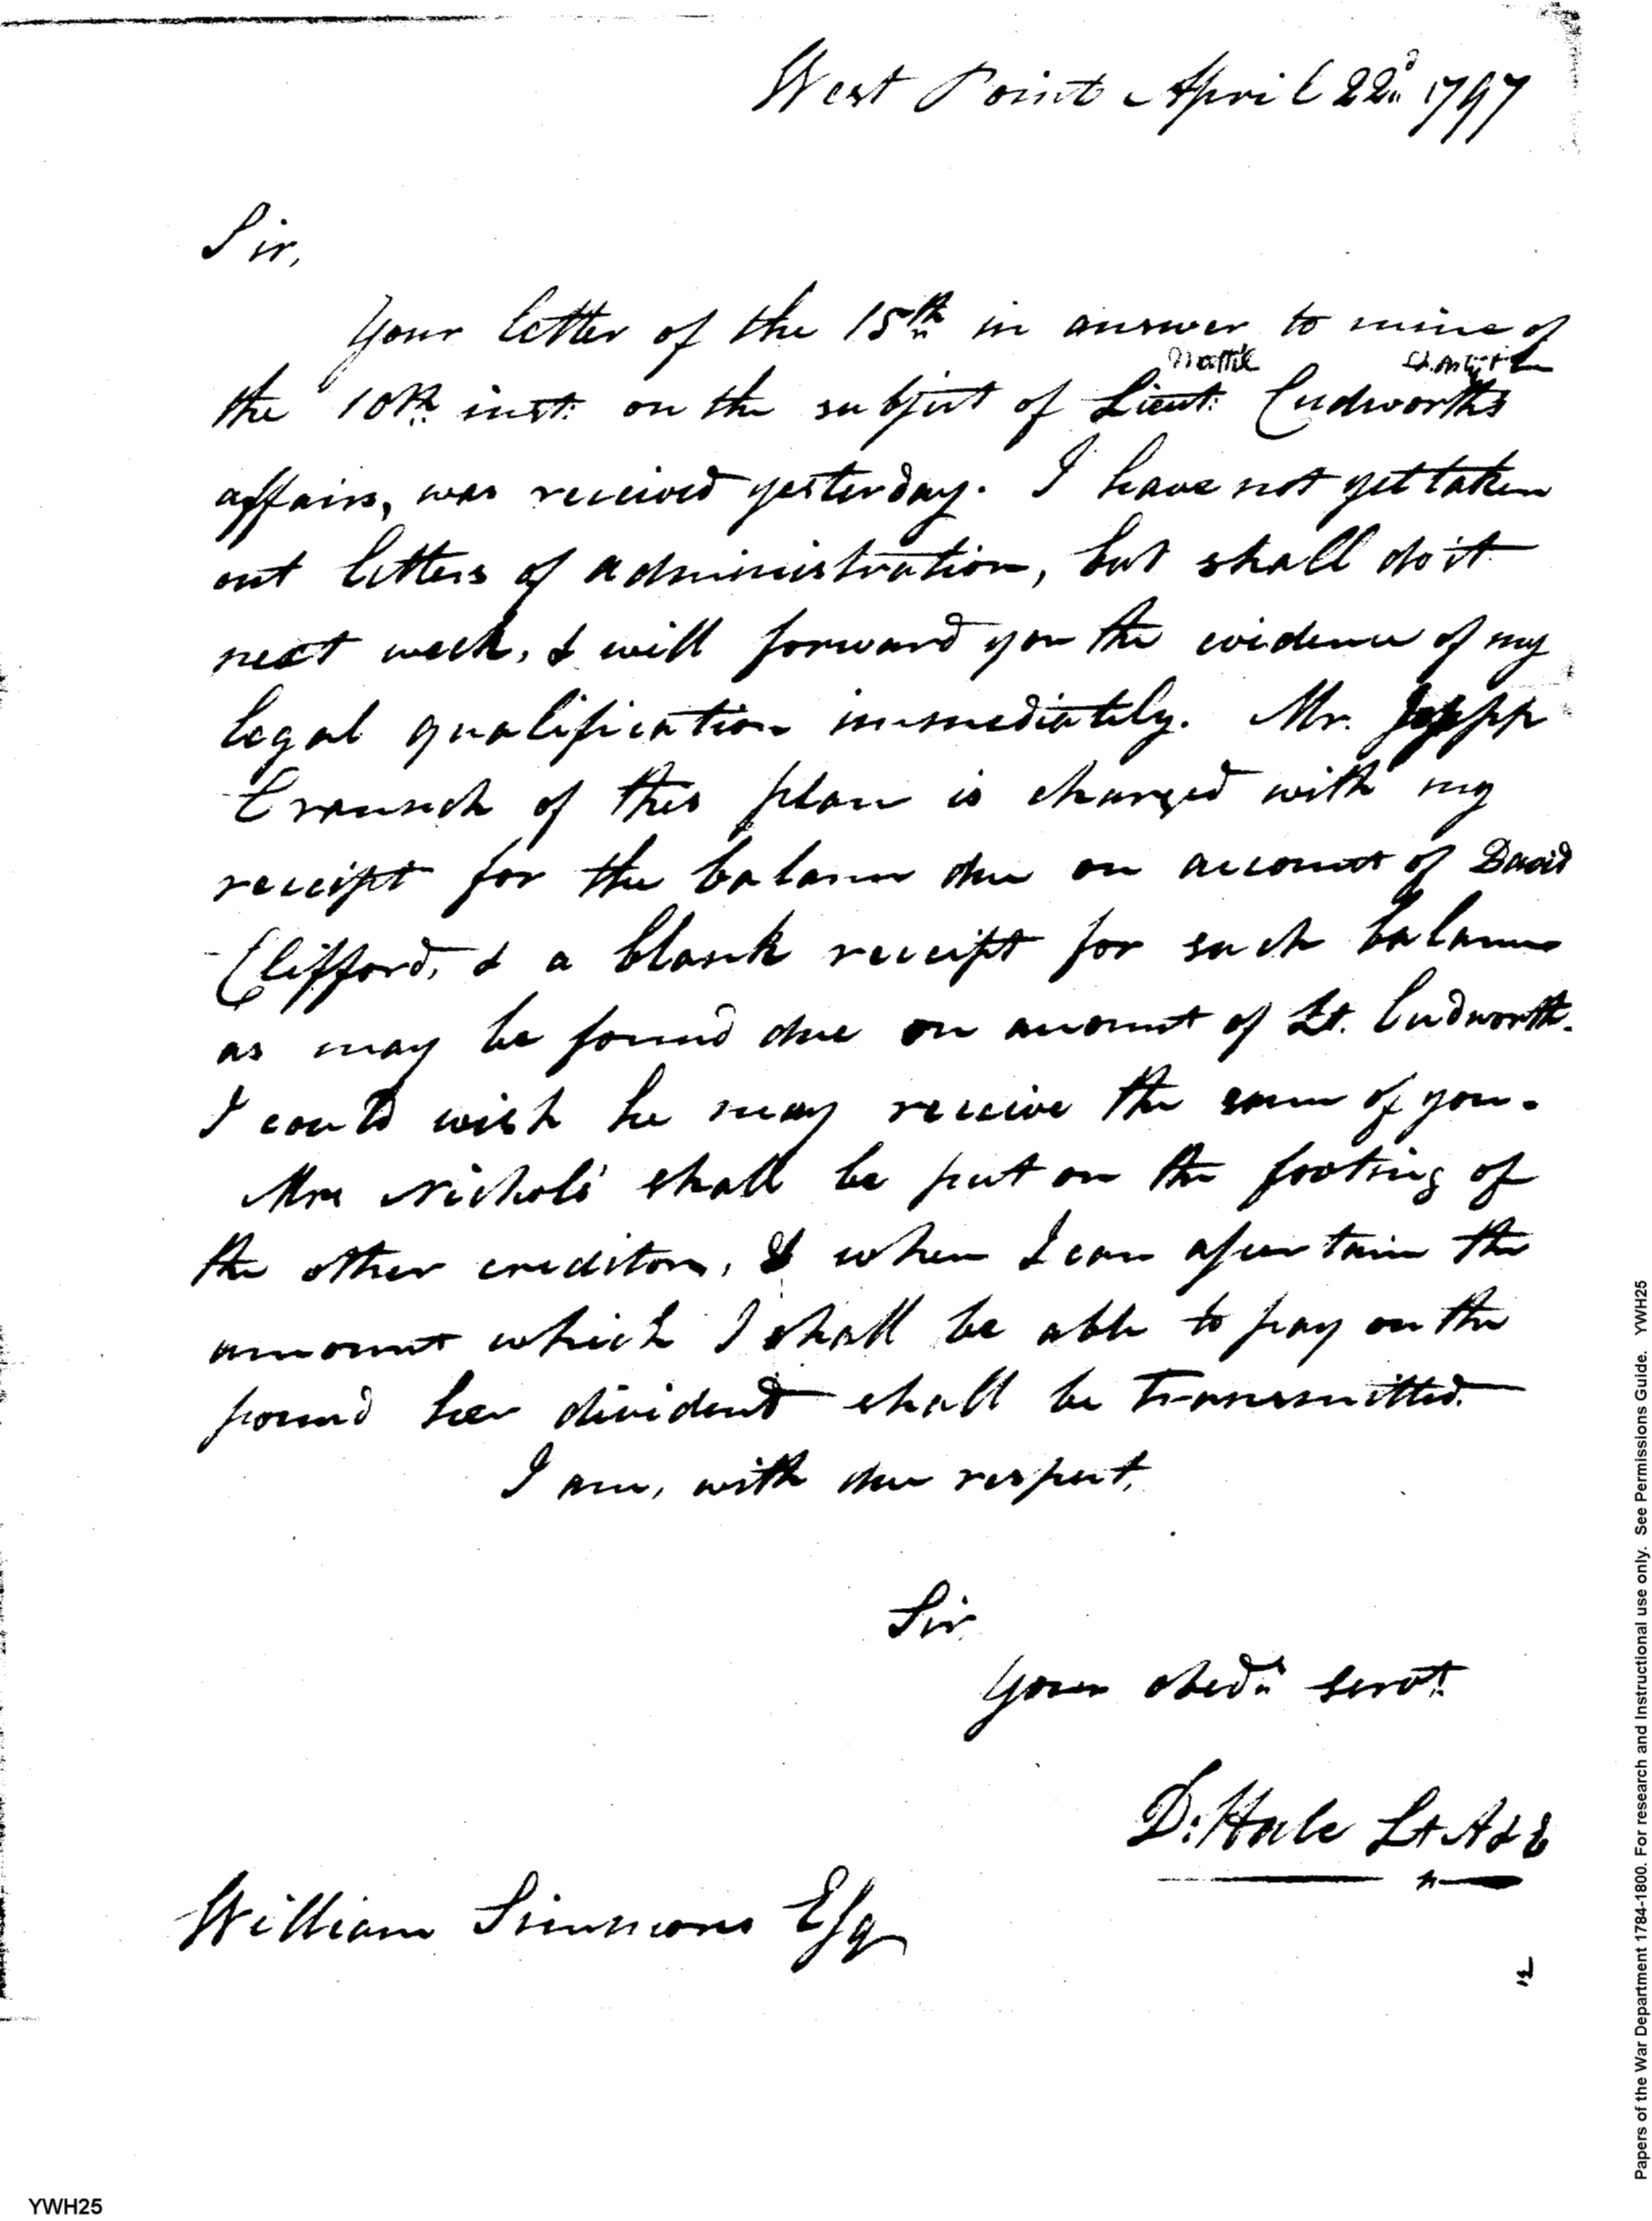 West Point April 22d 1797
Sir,
Your letter of the 15th in answer to mine of
the 10th inst: on the subject of Lieut: Cudworths
affairs, was received yesterday. I have not yet taken
out letters of administration, but shall do it
next week, & will forward you the evidence of my
legal qualification immediately. Mr.
of this place is charged with my
receipt for the balance due on account of David
Clifford, & a blank receipt for such balance
as may be found due on account of Lt. Cudworth.
I could wish he may receive the same of you.
Mrs Nichols' shall be put on the footing of
the other creditors, & when I can ascertain the
amount which I shall be able to pay on the
pound her dividend shall be transmitted.
I am, with due respect,
Sir
Your obedt servt
D: Hale Lt A & E
William Simmons Esq
YWH25
Papers of the War Department 1784-1800. For research and Instructional use only. See Permissions Guide. YWH25